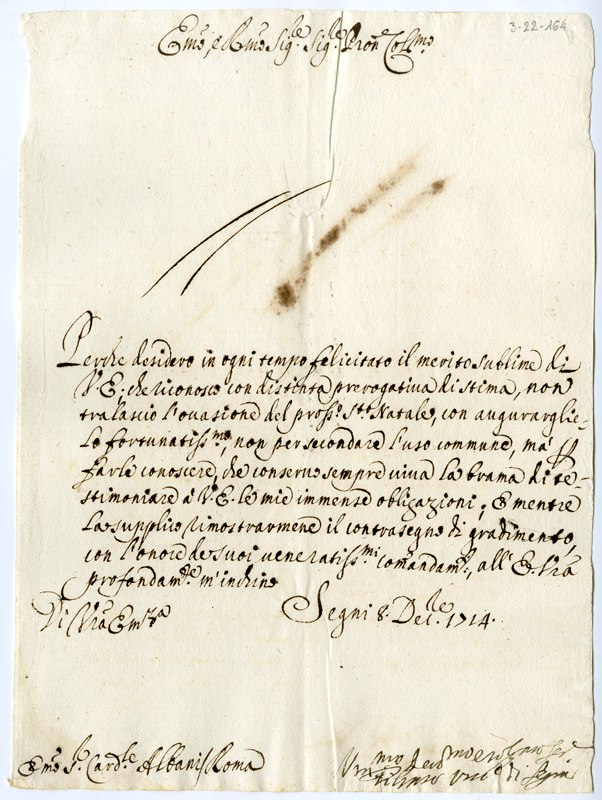 3-22-164
Emo, e Rmo Sig.re Sig.re Pron.e Col.mo
Perche desidero in ogni tempo felicitato il merito sublime di
V. E. che riconosco con distinta prerogativa di stima, non
tralascio l'ocasione del pross.o St.o Natale, con augurarglie-
lo fortunatiss.mo, non per secondare l'uso commune, mà p
farle conoscere, che conservo sempre viva la brama di te-
stimoniare à V. E. le mie immense obligazioni; E mentre
La supplico rimostrarmene il contrasegno di gradimento,
con l'onore de suoi veneratiss.mi comandam.ti, all' E. Vra
profondam.te m'inchino
Di Vra Em.za
Segni 8. Dec.le 1714.
Emo S.r Card.le Albani / Roma
Vesc.o di Segni